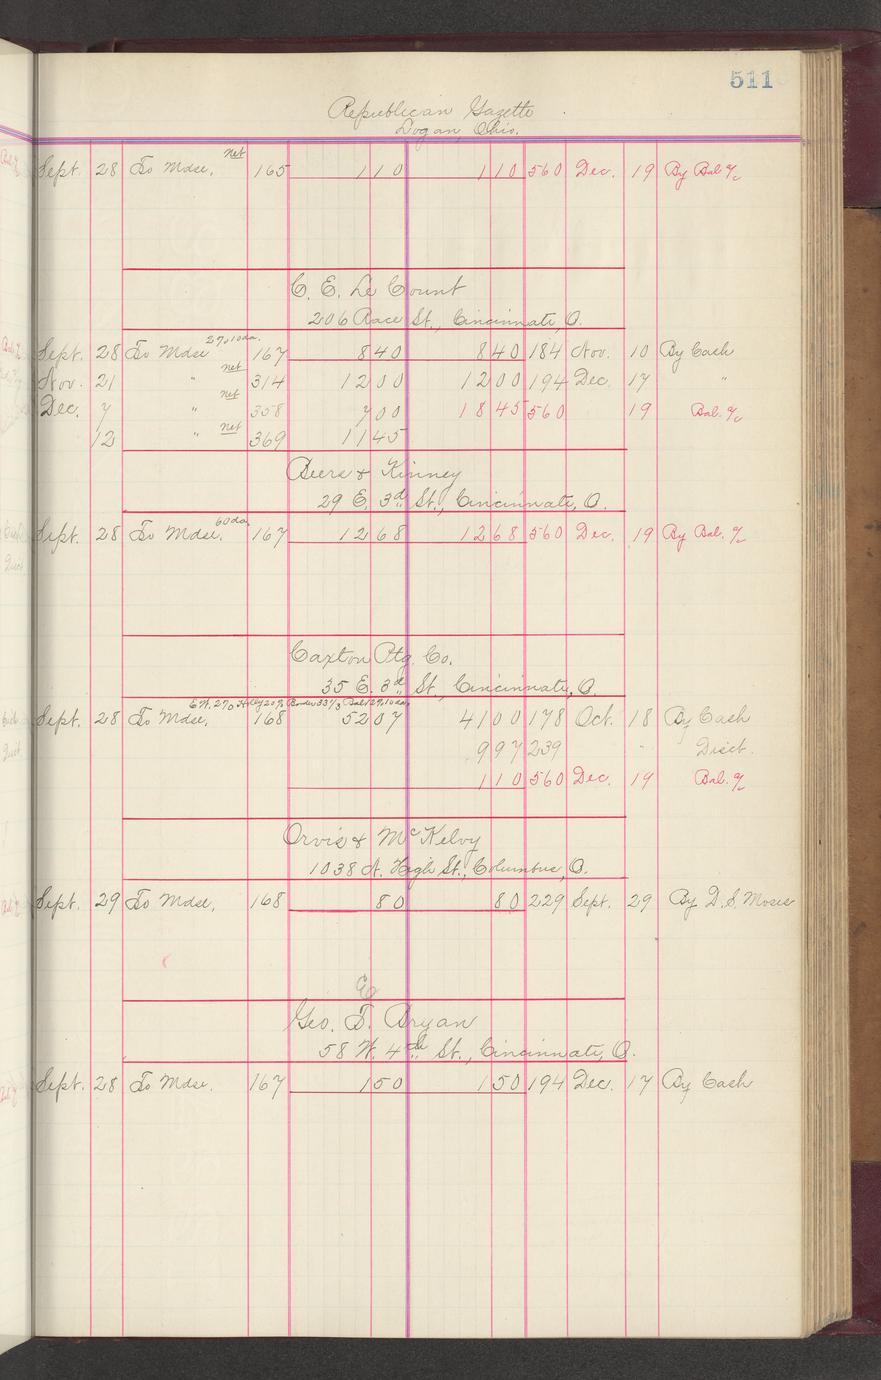 511
Republican Gazette
Logan, Ohio.
Sept. 28 To Mdse. net 165 110 110 560 Dec. 19 By Bal a/c
C. E. Le Count
206 Race St., Cincinnati, O.
Sept. 28 To Mdse 2% 10 da. 167 840 840 184 Nov. 10 By Cash
Nov. 21 " net 314 1200 1200 194 Dec. 17 "
Dec. 7 " net 358 700 1845 560 19 Bal. a/c
12 " net 369 1145
Beers & Kinney
29 E. 3d St., Cincinnati, O.
Sept. 28 To Mdse. 60 da. 167 1268 1268 560 Dec. 19 By Bal. a/c
Caxton Ptg. Co.
35 E. 3d St., Cincinnati, O.
Holly 20% Border 33 1/3 Bal 2% 10 da.
Sept. 28 To Mdse. 168 5207 4100 178 Oct. 18 By Cash
997 239 " Disct.
110 560 Dec. 19 Bal. a/c
Orvis & McKelvy
1038 N. High St., Columbus, O.
Sept. 29 To Mdse. 168 80 80 229 Sept. 29 By D. S. Moses
Geo. T. Bryan
58 W. 4th St., Cincinnati, O.
Sept. 28 To Mdse. 167 150 150 194 Dec. 17 By Cash